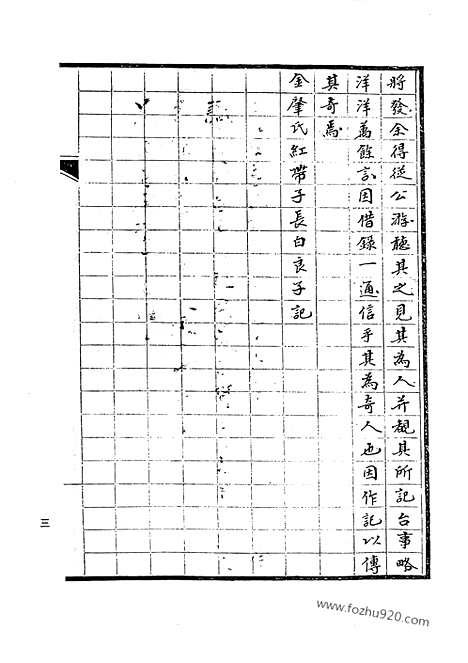 將發余得從公游聽其之見其為人并覩其所記台事略
洋洋萬餘言因借錄一通信乎其為奇人也因作記以傳
其奇焉
金肇氏紅帶子長白良子記
三
www.fozhu920.com